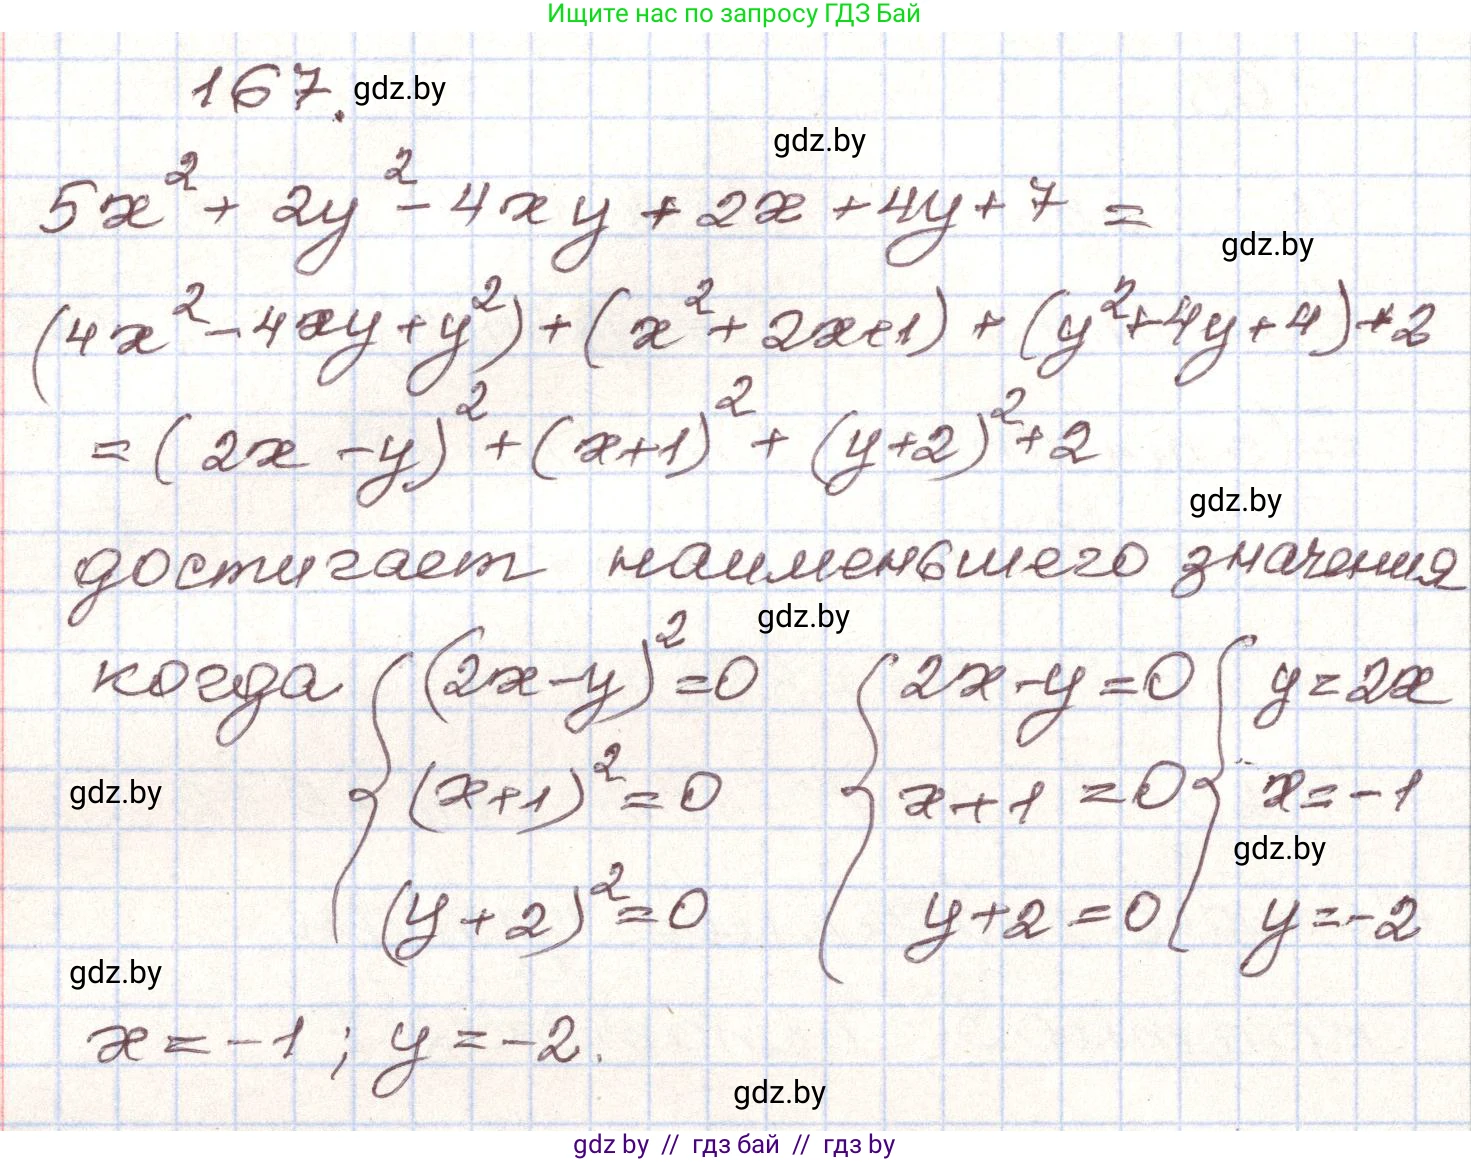 Ищите нас по запросу ГДЗ Бай
167. gdz.by
gdz.by
5x² + 2y² - 4xy + 2x + 4y + 7 =
gdz.by
(4x² - 4xy + y²) + (x² + 2x + 1) + (y² + 4y + 4) + 2
= (2x - y)² + (x+1)² + (y+2)² + 2
gdz.by
достигает наименьшего значения
gdz.by
когда { (2x-y)² = 0 { 2x-y=0 { y=2x
gdz.by (x+1)² = 0 x+1 = 0 x=-1
gdz.by
(y+2)² = 0 y+2 = 0 y=-2
gdz.by
x = -1 ; y = -2.
gdz.by
gdz by // гдз бай // гдз by